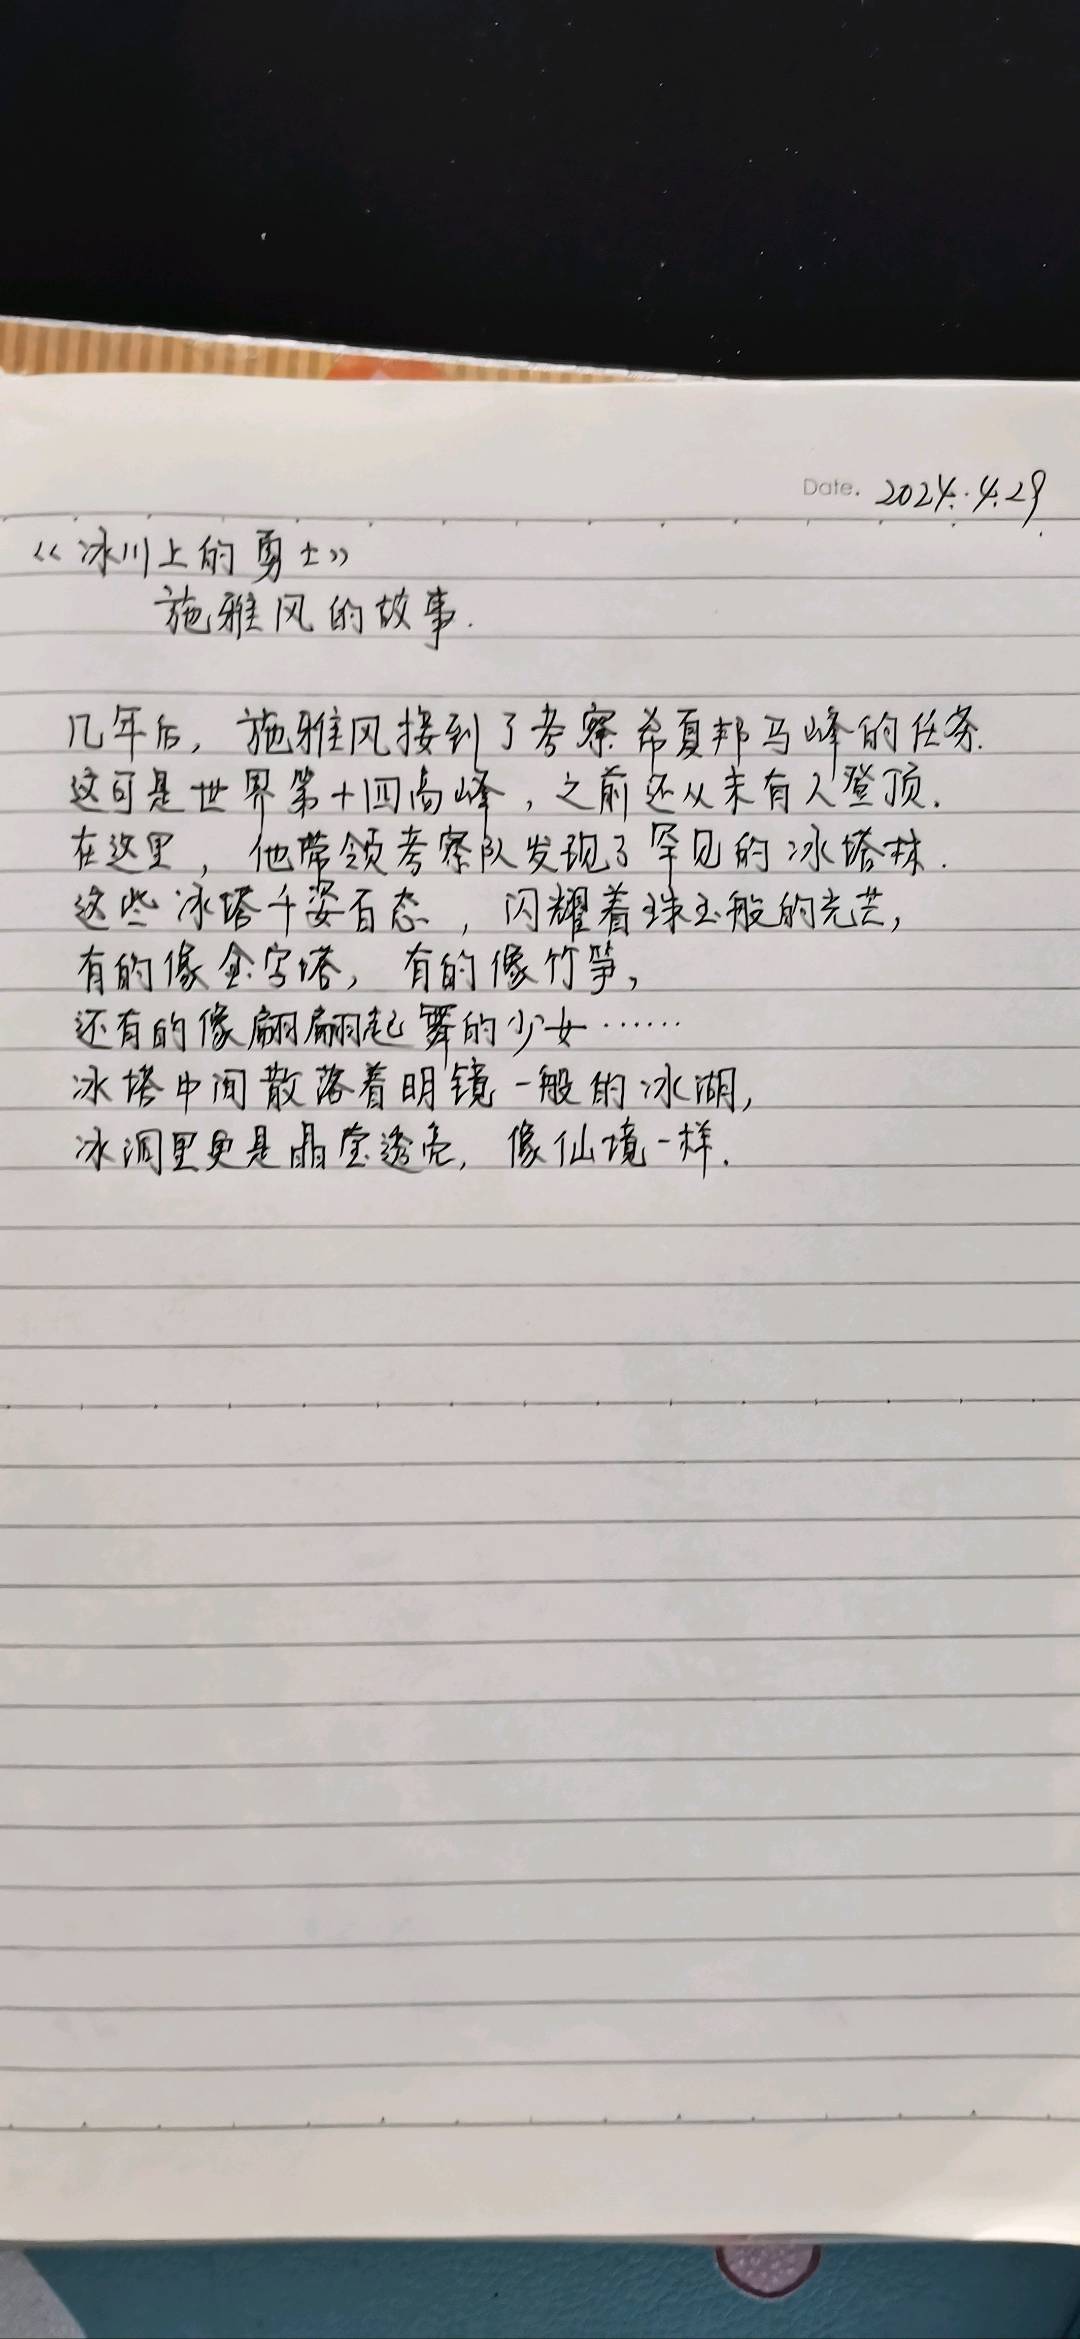 Date. 2024.4.29
《冰川上的勇士》
施雅风的故事.
几年后，施雅风接到了考察希夏邦马峰的任务.
这可是世界第十四高峰，之前还从未有人登顶.
在这里，他带领考察队发现了罕见的冰塔林.
这些冰塔千姿百态，闪耀着珠玉般的光芒，
有的像金字塔，有的像竹笋，
还有的像翩翩起舞的少女……
冰塔中间散落着明镜一般的冰湖，
冰洞里更是晶莹透亮，像仙境一样.